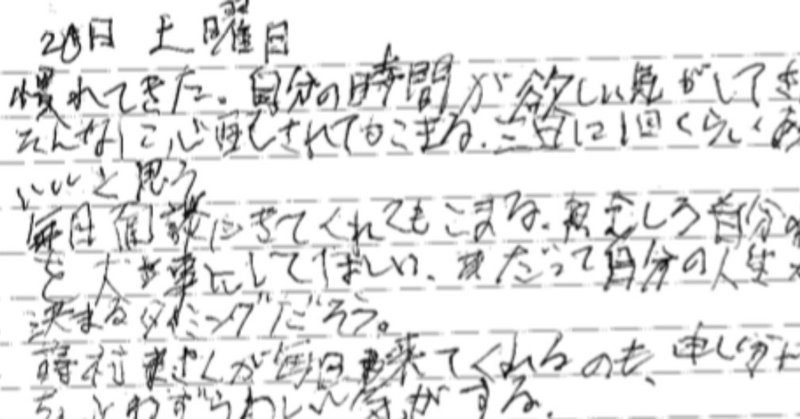 20日 土曜日
慣れてきた。自分の時間が欲しい気がしてき
そんなに心配しされてもこまる。三日に1回くらいで
いいと思う
毎日面談にきてくれてもこまる。むしろ自分の
を大事にしてほしい、まだって自分の人生
決まるタイミングだろう。
蒔村さんが毎日来てくれるのも、申し訳
ちょっとわずらわしい気がする。